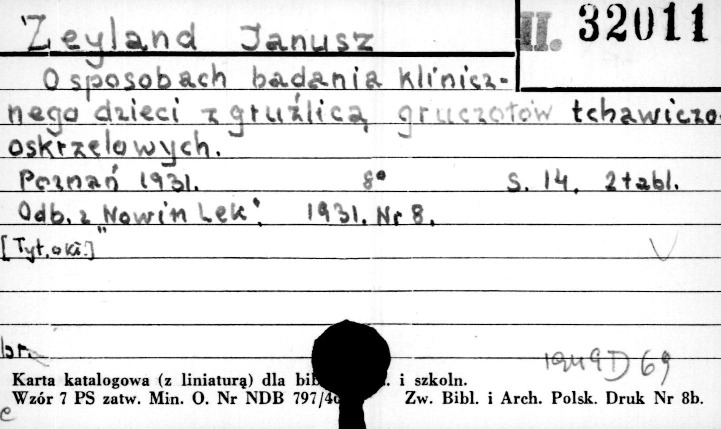 Zeyland Janusz
II. 32011
O sposobach badania klinicz-
nego dzieci z gruźlicą gruczołów tchawiczo-
oskrzelowych.
Poznań 1931. 8° S. 14. 2 tabl.
Odb. z "Nowin Lek." 1931. Nr 8.
[Tyt. okł.]
br.
1949 D 69
Karta katalogowa (z liniaturą) dla i szkoln.
Wzór 7 PS zatw. Min. O. Nr NDB 797/4 Zw. Bibl. i Arch. Polsk. Druk Nr 8b.